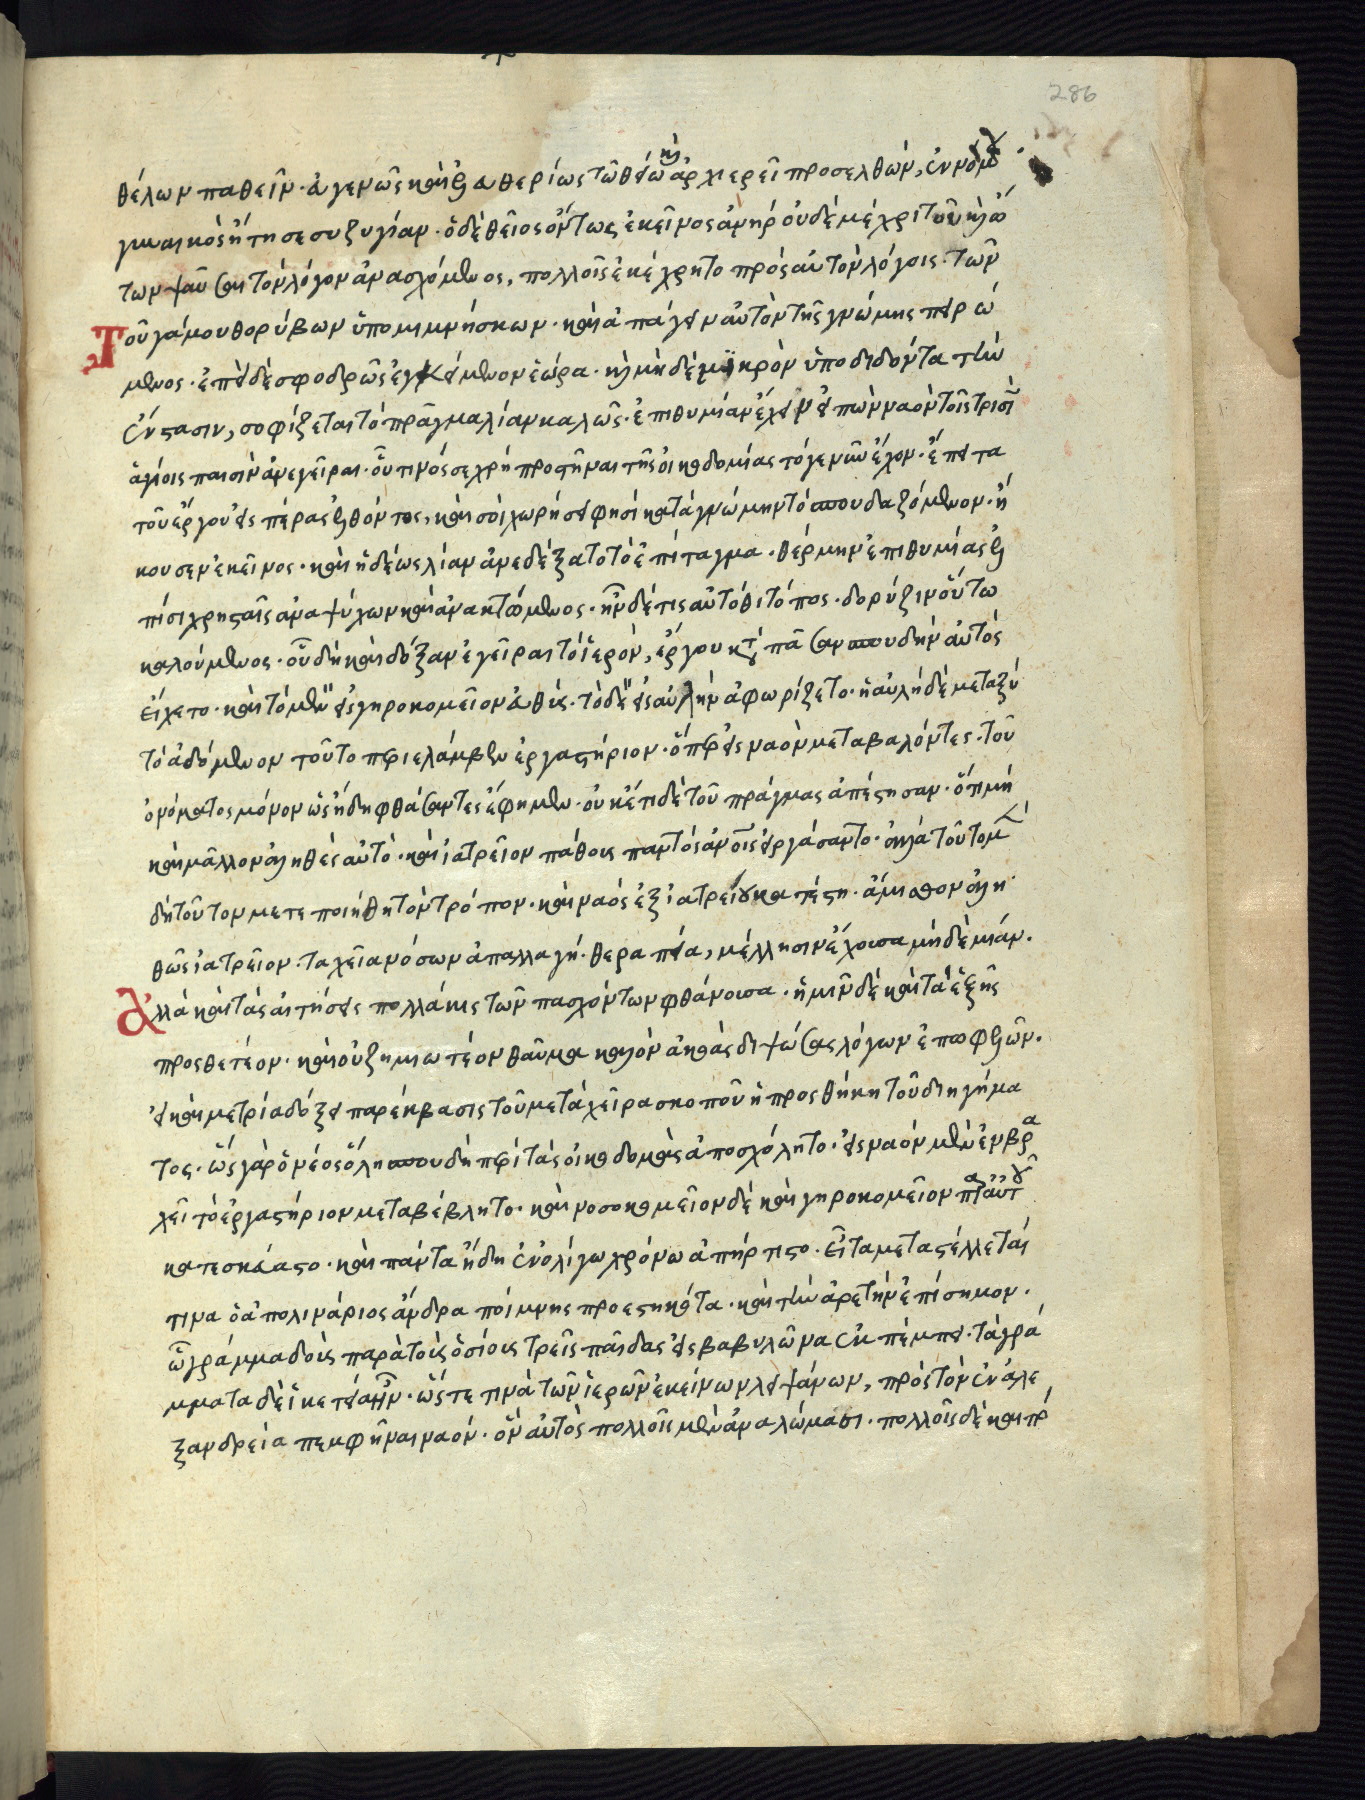 286
θέλων παθεῖν· ἀγενῶς καὶ ἐλευθερίως τῶ θείω καὶ ἀρχιερεῖ προσελθών, ἐννόμου
γυναικὸς ἤτησε συζυγίαν· ὁ δὲ θεῖος ὄντως ἐκεῖνος ἀνὴρ οὐδὲ μέχρι τοῦ
των ψαῦσαι τὸν λόγον ἀνασχόμενος, πολλοῖς ἐκέχρητο πρὸς αὐτὸν λόγοις· τῶν
τοῦ γάμου θορύβων ὑπομιμνήσκων· καὶ ἀπάγειν αὐτὸν τῆς γνώμης πειρώ
μενος· ἐπεὶ δὲ σφοδρῶς ἐγκείμενον ἑώρα· καὶ μηδὲ μικρὸν ὑποδιδόντα τὴν
ἔνστασιν, σοφίζεται τὸ πρᾶγμα λίαν καλῶς· ἐπιθυμίαν ἔχειν εἰπὼν ναὸν τοῖς τρισὶν
ἁγίοις παισὶν ἀνεγεῖραι· οὗτινός σε χρὴ προστῆναι τῆς οἰκοδομίας τό γε νῦν ἔχον· ἔπειτα
τοῦ ἔργου εἰς πέρας ἐλθόντος, καὶ σοὶ χωρήσει φησὶ κατὰ γνώμην τὸ σπουδαζόμενον· ἤ
κουσεν ἐκεῖνος· καὶ ἡδέως λίαν ἀνεδέξατο τὸ ἐπίταγμα· θέρμην ἐπιθυμίας ἐλ
πίσι χρησταῖς ἀναψύχων καὶ ἀνακτώμενος· ἦν δέ τις αὐτόθι τόπος· δορύζιν οὕτω
καλούμενος· οὗ δὴ καὶ δόξαν ἐγεῖραι τὸ ἱερόν, ἔργου κατὰ πᾶσαν σπουδὴν αὐτὸς
εἴχετο· καὶ τὸ μὲν εἰς γηροκομεῖον εὐθύς· τὸ δὲ εἰς αὐλὴν ἀφωρίζετο· ἡ αὐλὴ δὲ μεταξὺ
τὸ ἀδόμενον τοῦτο περιελάμβανεν ἐργαστήριον· ὅπερ εἰς ναὸν μεταβαλόντες· τοῦ
ὀνόματος μόνον ὡς ἤδη φθάσαντες ἔφημεν· οὐκέτι δὲ τοῦ πράγματος ἀπέστησαν· ὅτι μὴ
καὶ μᾶλλον ἀληθὲς αὐτὸ· καὶ ἰατρεῖον πάθους παντὸς ἀνοις εἰργάσαντο· ἀλλὰ τοῦτο μὲν
δὴ τοῦτον μετεποιήθη τὸν τρόπον· καὶ ναὸς ἐξ ἰατρείου κατέστη· ἄμισθον ἀλη
θῶς ἰατρεῖον· ταχεῖα νόσων ἀπαλλαγή· θεραπεία, μέλλησιν ἔχουσα μηδὲ μίαν.
ἀλλὰ καὶ τὰς αἰτήσεις πολλάκις τῶν πασχόντων φθάνουσα· ἡμῖν δὲ καὶ τὰ ἑξῆς
προσθετέον· καὶ οὐ ζημιωτέον θαῦμα καλὸν ἀκοὰς διψώσας λόγων ἐπωφελῶν.
εἰ καὶ μετρία δόξει παρέκβασις τοῦ μετὰ χεῖρα σκοποῦ ἡ προσθήκη τοῦ διηγήμα
τος· ὡς γὰρ ὁ νέος ὅλη σπουδῆ περὶ τὰς οἰκοδομὰς ἀπησχόλητο· εἰς ναὸν μὲν ἐν βρα
χεῖ τὸ ἐργαστήριον μεταβέβλητο· καὶ νοσοκομεῖον δὲ καὶ γηροκομεῖον παρ' αὐτοῦ
κατεσκεύαστο· καὶ πάντα ἤδη ἐν ὀλίγω χρόνω ἀπήρτιστο· εἶτα μεταστέλλεταί
τινα ὁ ἀπολινάριος ἄνδρα ποίμνης προεστηκότα· καὶ τὴν ἀρετὴν ἐπίσημον.
ὧ γράμμα δοὺς παρὰ τοὺς ὁσίους τρεῖς παῖδας εἰς βαβυλῶνα ἐκπέμπει· τὰ γρά
μματα δὲ ἱκετεία ἦν· ὥστε τινὰ τῶν ἱερῶν ἐκείνων λειψάνων, πρὸς τὸν ἐν ἀλε
ξανδρεία πεμφῆναι ναόν· ὃν αὐτὸς πολλοῖς μὲν ἀναλώμασι· πολλοῖς δὲ καὶ πό